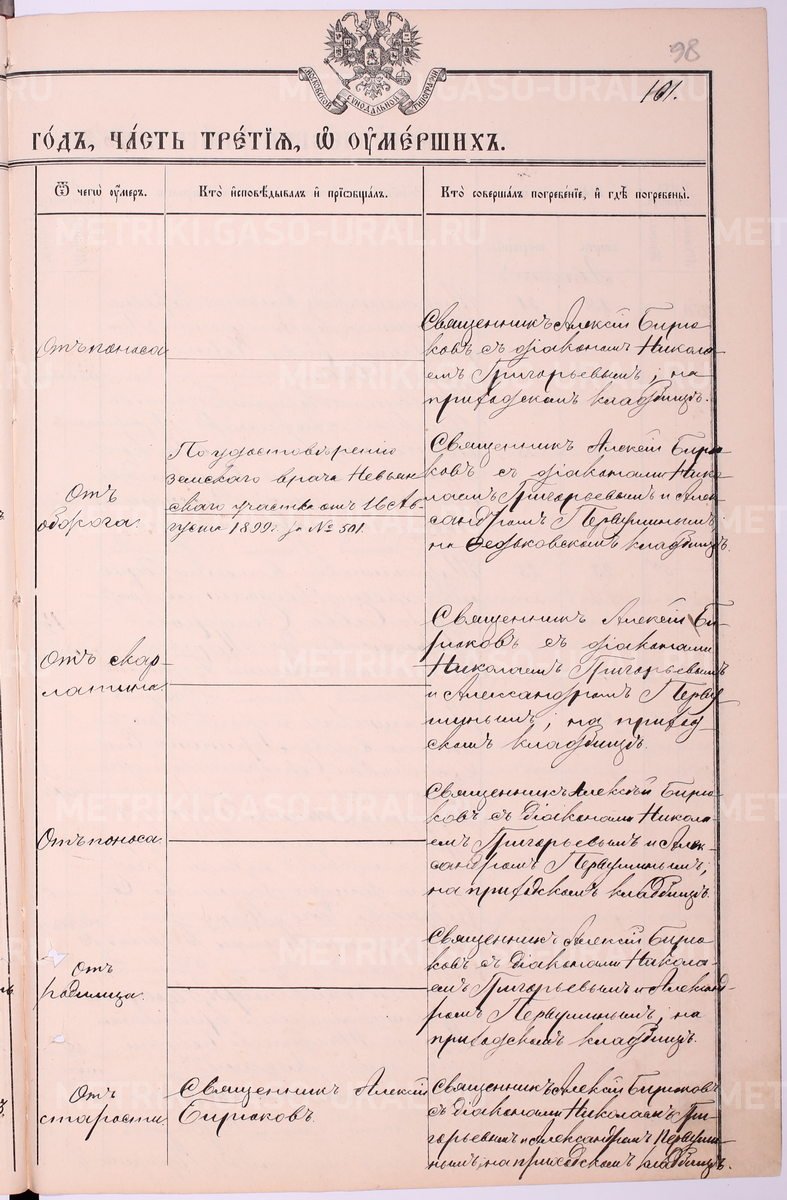 98
101.
МОСКОВСКОЙ СѴНОДАЛЬНОЙ ТИПОГРАФІИ
ГО́ДЪ, ЧА́СТЬ ТРЕ́ТІѦ, Ѽ ОУ҆МЕ́РШИХЪ.
Ѿ чегѡ̀ оу҆́меръ.
Кто̀ и҆сповѣ́дывалъ и҆ приѡбща́лъ.
Кто̀ соверша́лъ погребе́нїе, и҆ гдѣ̀ погребены̀.
Отъ поноса
Священникъ Алексій Бирю
ковъ съ діакономъ Никола
емъ Григорьевымъ; на
приходскомъ кладбищѣ.
Отъ
оборога.
По удостовѣренію
земскаго врача Невьян
скаго участка отъ 16 Ав-
густа 1899 г. за № 501.
Священникъ Алексій Бирю
ковъ съ діаконами Нико
лаемъ Григорьевымъ и Алек
сандромъ Первушинымъ
на Федьковскомъ кладбищѣ.
Отъ скар-
латины
Священникъ Алексій Би-
рюковъ съ діаконами
Николаемъ Григорьевымъ
и Александромъ Перву
шинымъ; на приход-
скомъ кладбищѣ.
Отъ поноса
Священникъ Алексѣй Бирю
ковъ съ діаконами Никола
емъ Григорьевымъ и Алек-
сандромъ Первушинымъ;
на приходскомъ кладбищѣ.
Отъ
родимца.
Священникъ Алексій Бирю
ковъ съ діаконами Никола-
емъ Григорьевымъ и Александ-
ромъ Первушинымъ; на
приходскомъ кладбищѣ.
Отъ
старости
Священникъ Алексій
Бирюковъ.
Священникъ Алексій Бирюковъ
съ діаконами Николаемъ Гри-
горьевымъ и Александромъ Первуши
нымъ, на приходскомъ кладбищѣ.
METRIKI.GASO-URAL.RU